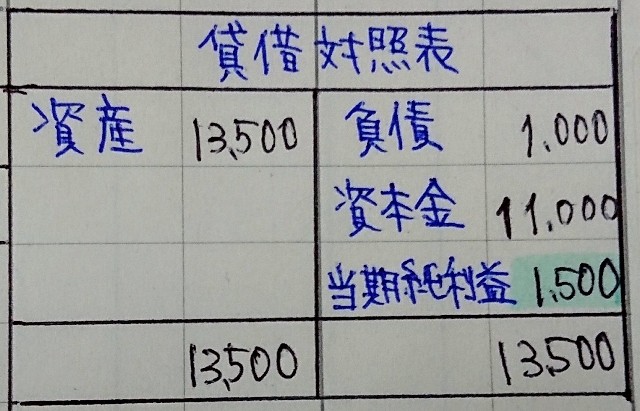 貸借対照表
資産 13,500 負債 1,000
資本金 11,000
当期純利益 1,500
13,500 13,500